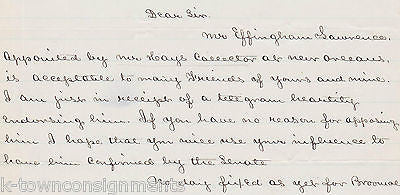 Dear Sir.
Mr Effingham Lawrence.
Appointed by Mr Hays Collector at New Orleans.
is acceptable to many Friends of yours and mine.
I am just in receipt of a telegram heartily
endorsing him. If you have no reason for opposing
him I hope that you will use your influence to
have him Confirmed by the Senate
day fixed as yet for
k-townconsignments